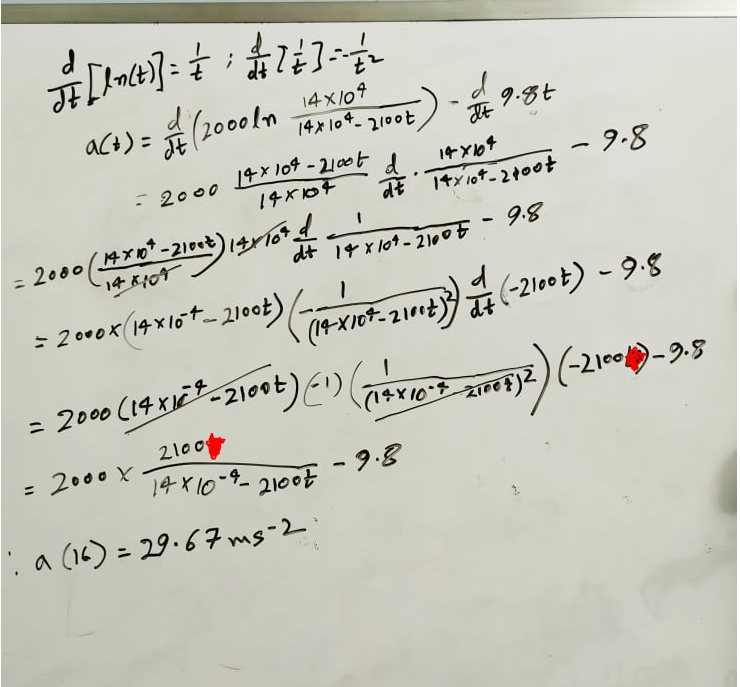 d/dt [ln(t)] = 1/t ; d/dt [1/t] = -1/t²
a(t) = d/dt (2000 ln (14×10⁴)/(14×10⁴ - 2100t)) - d/dt 9.8t
= 2000 (14×10⁴ - 2100t)/(14×10⁴) d/dt · (14×10⁴)/(14×10⁴ - 2100t) - 9.8
= 2000 ((14×10⁴ - 2100t)/(14×10⁴)) 14×10⁴ d/dt 1/(14×10⁴ - 2100t) - 9.8
= 2000×(14×10⁻⁴ - 2100t) (-1/(14×10⁴ - 2100t)²) d/dt (-2100t) - 9.8
= 2000 (14×10⁻⁴ - 2100t) (-1) (1/(14×10⁻⁴ - 2100t)²) (-2100) - 9.8
= 2000 × 2100/(14×10⁻⁴ - 2100t) - 9.8
∴ a(16) = 29.67 ms⁻²